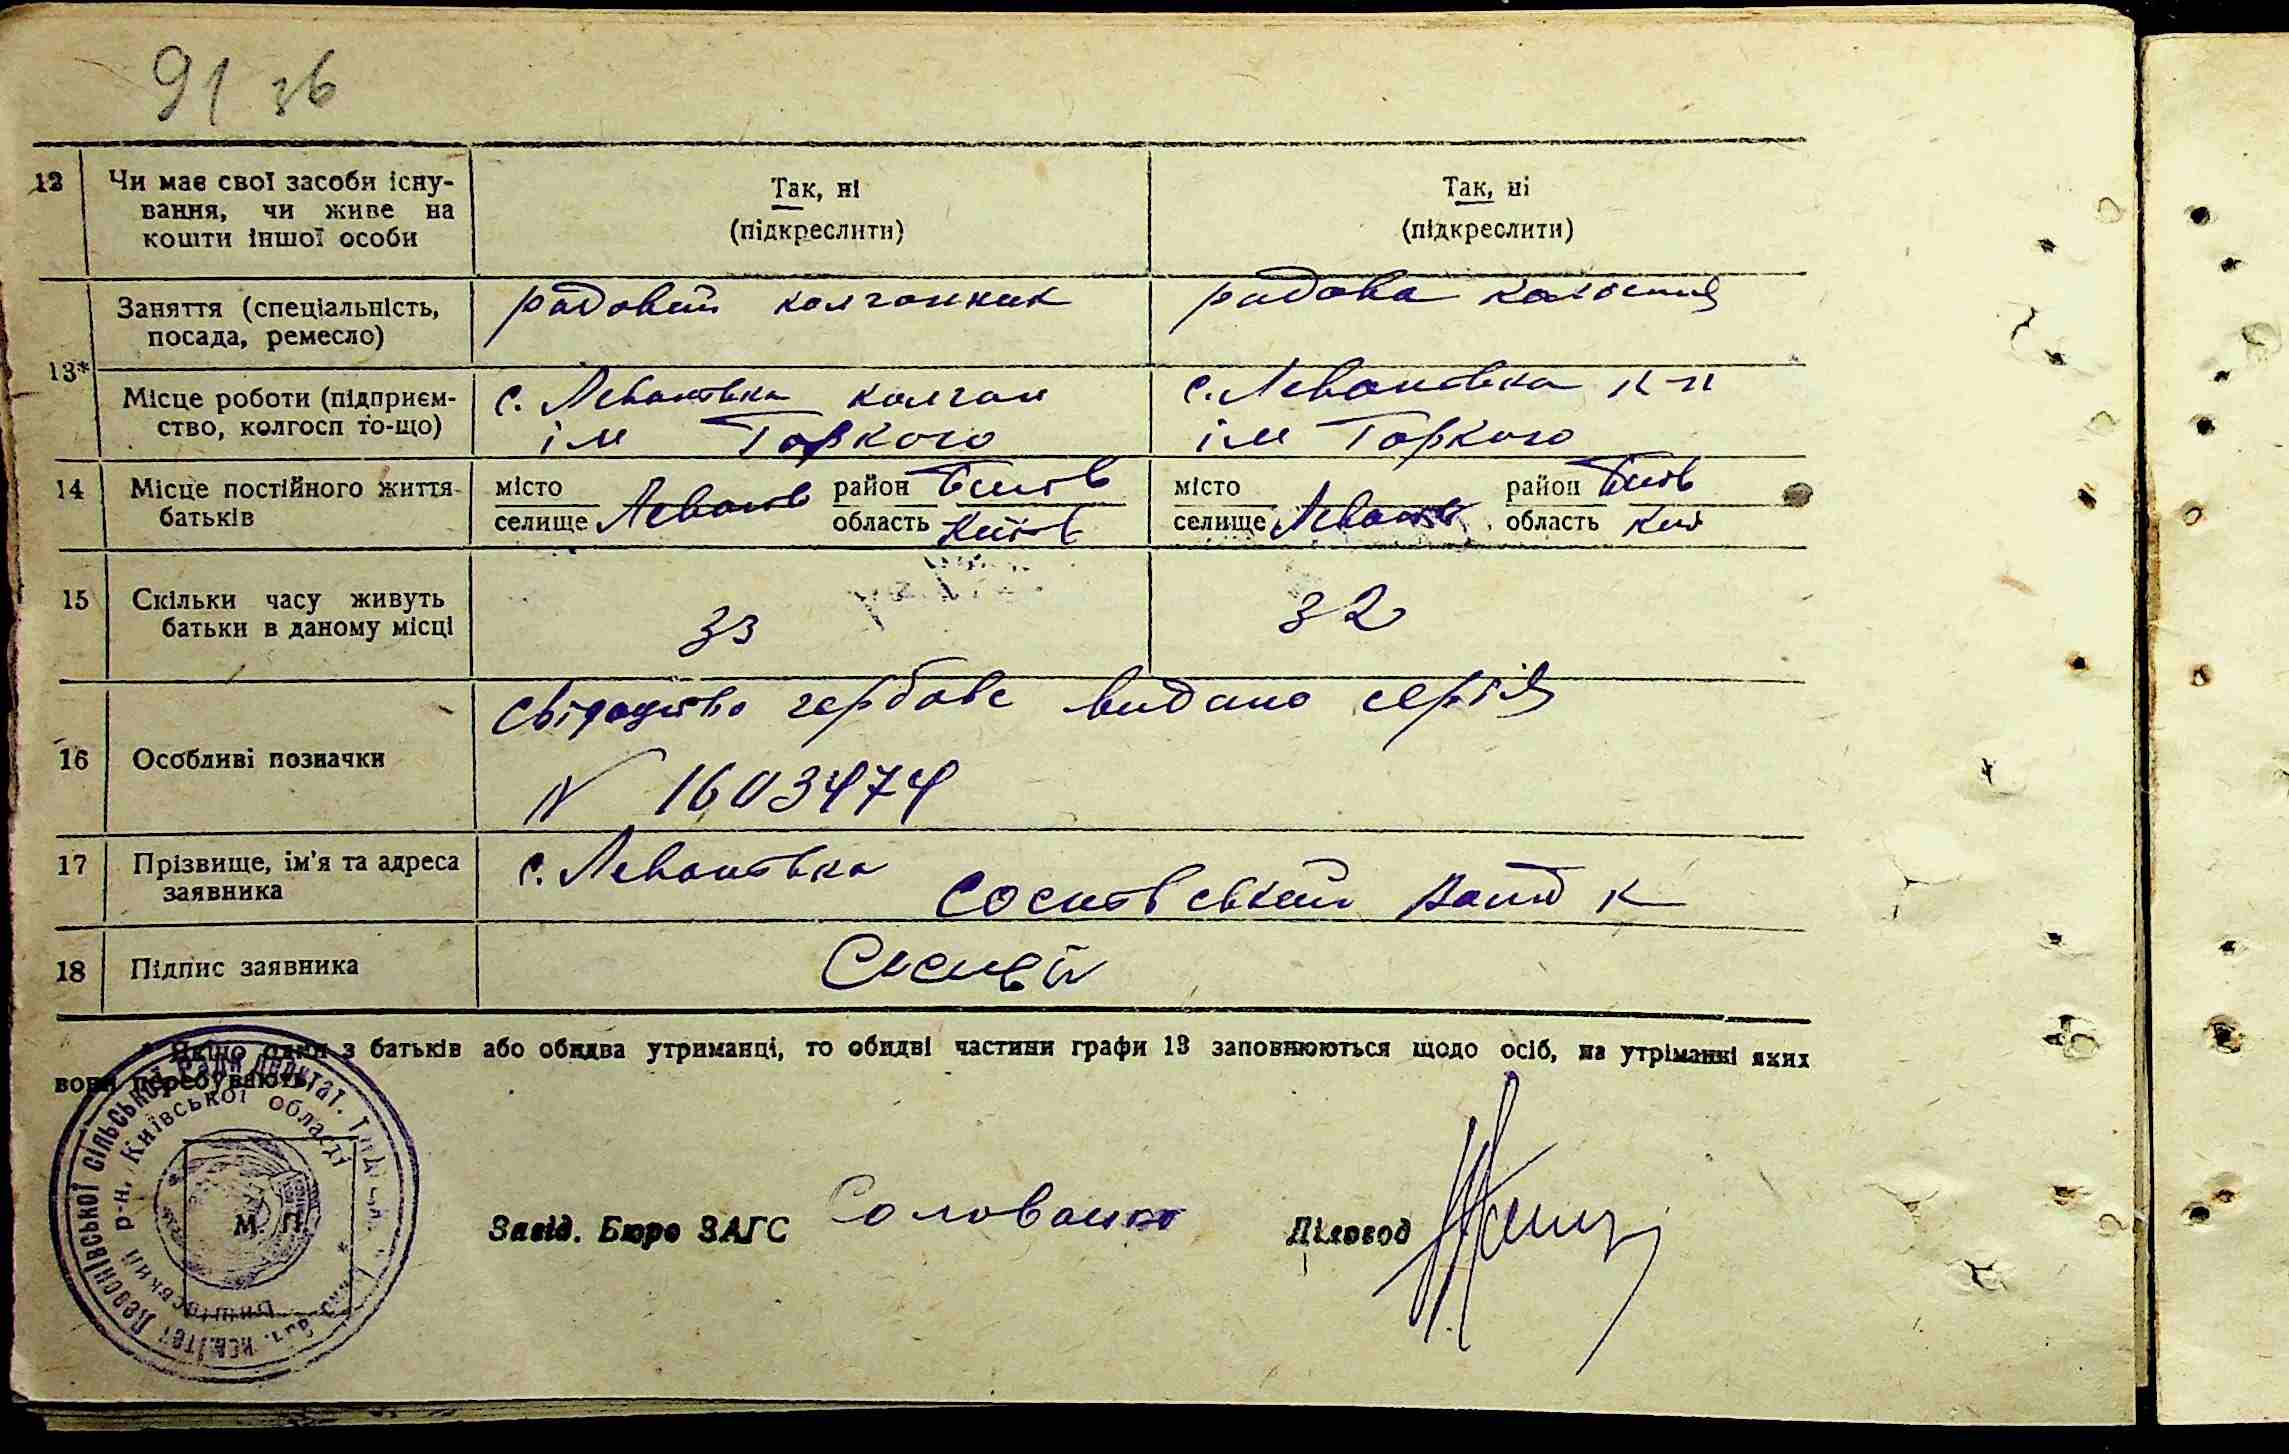 91 зв
12 Чи має свої засоби існу- Так, ні Так, ні
вання, чи живе на (підкреслити) (підкреслити)
кошти іншої особи
13* Заняття (спеціальність, рядовий колгоспник рядова
посада, ремесло)
Місце роботи (підприєм- с. Леванівка колгосп с. Леванівка к-п
ство, колгосп то-що) ім Горкого ім Горкого
14 Місце постійного життя місто район місто район
батьків селище Леванів область Київ селище Леванів область Київ
15 Скільки часу живуть 33 32
батьки в даному місці
свідоцтво гербове видано серія
16 Особливі позначки
N 1603474
17 Прізвище, ім'я та адреса с. Леванівка
заявника Сосновський к
18 Підпис заявника
* Якщо один з батьків або обидва утриманці, то обидві частини графи 13 заповнюються щодо осіб, на утріманні яких
вони перебувають.
сільської Ради депутат.
р-н, Київської області
М. П.
Завід. Бюро ЗАГС Діловод